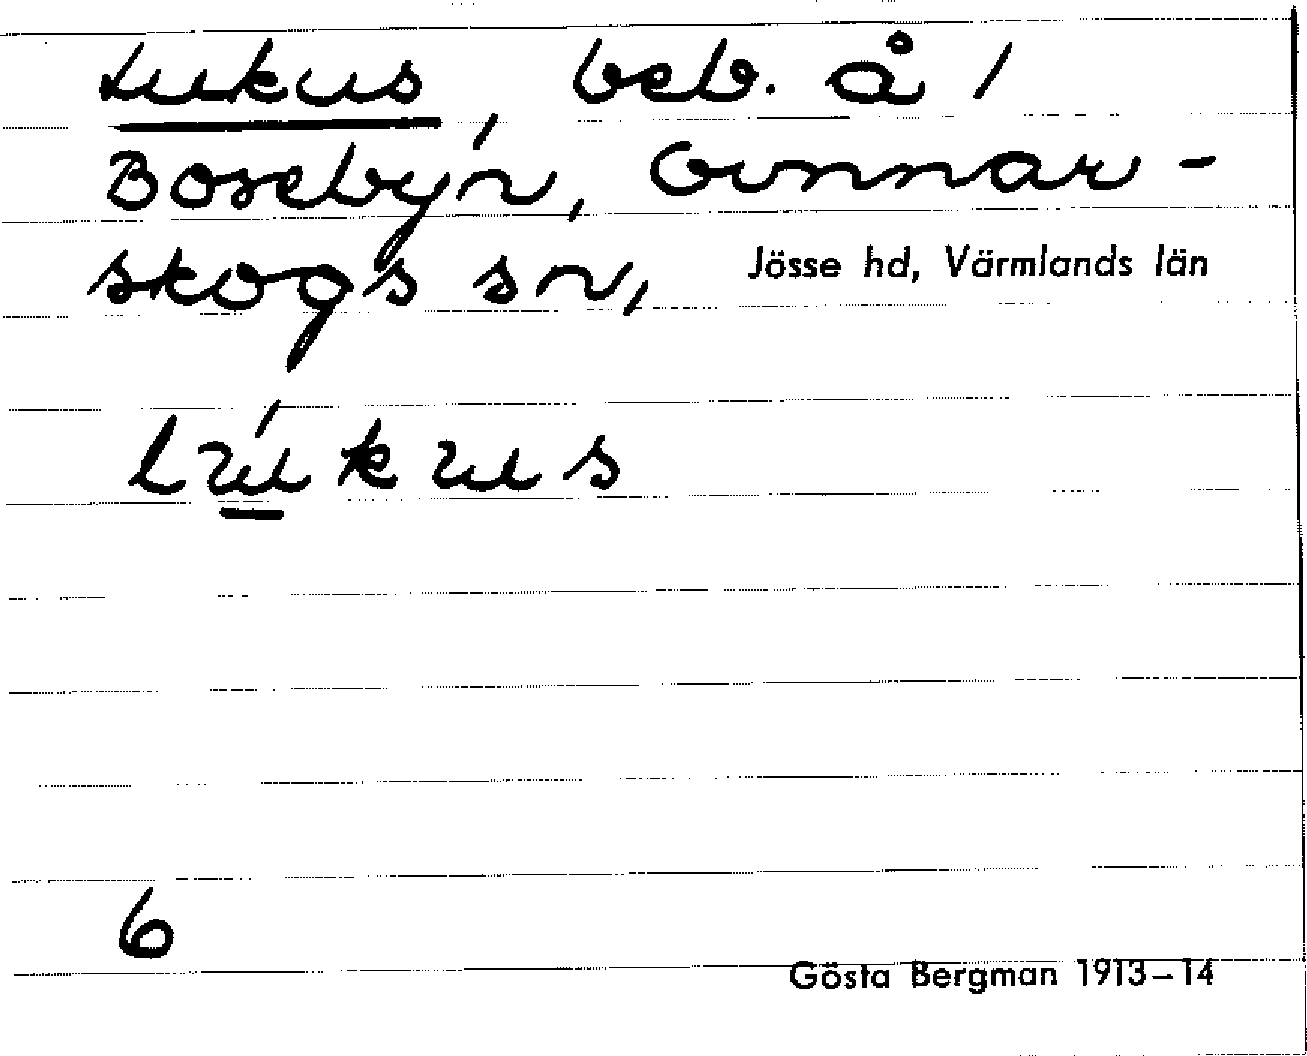 Lukus, beb. å 1
Bosebyn, Gunnar-
skogs sn, Jösse hd, Värmlands län
lúkus
6
Gösta Bergman 1913–14